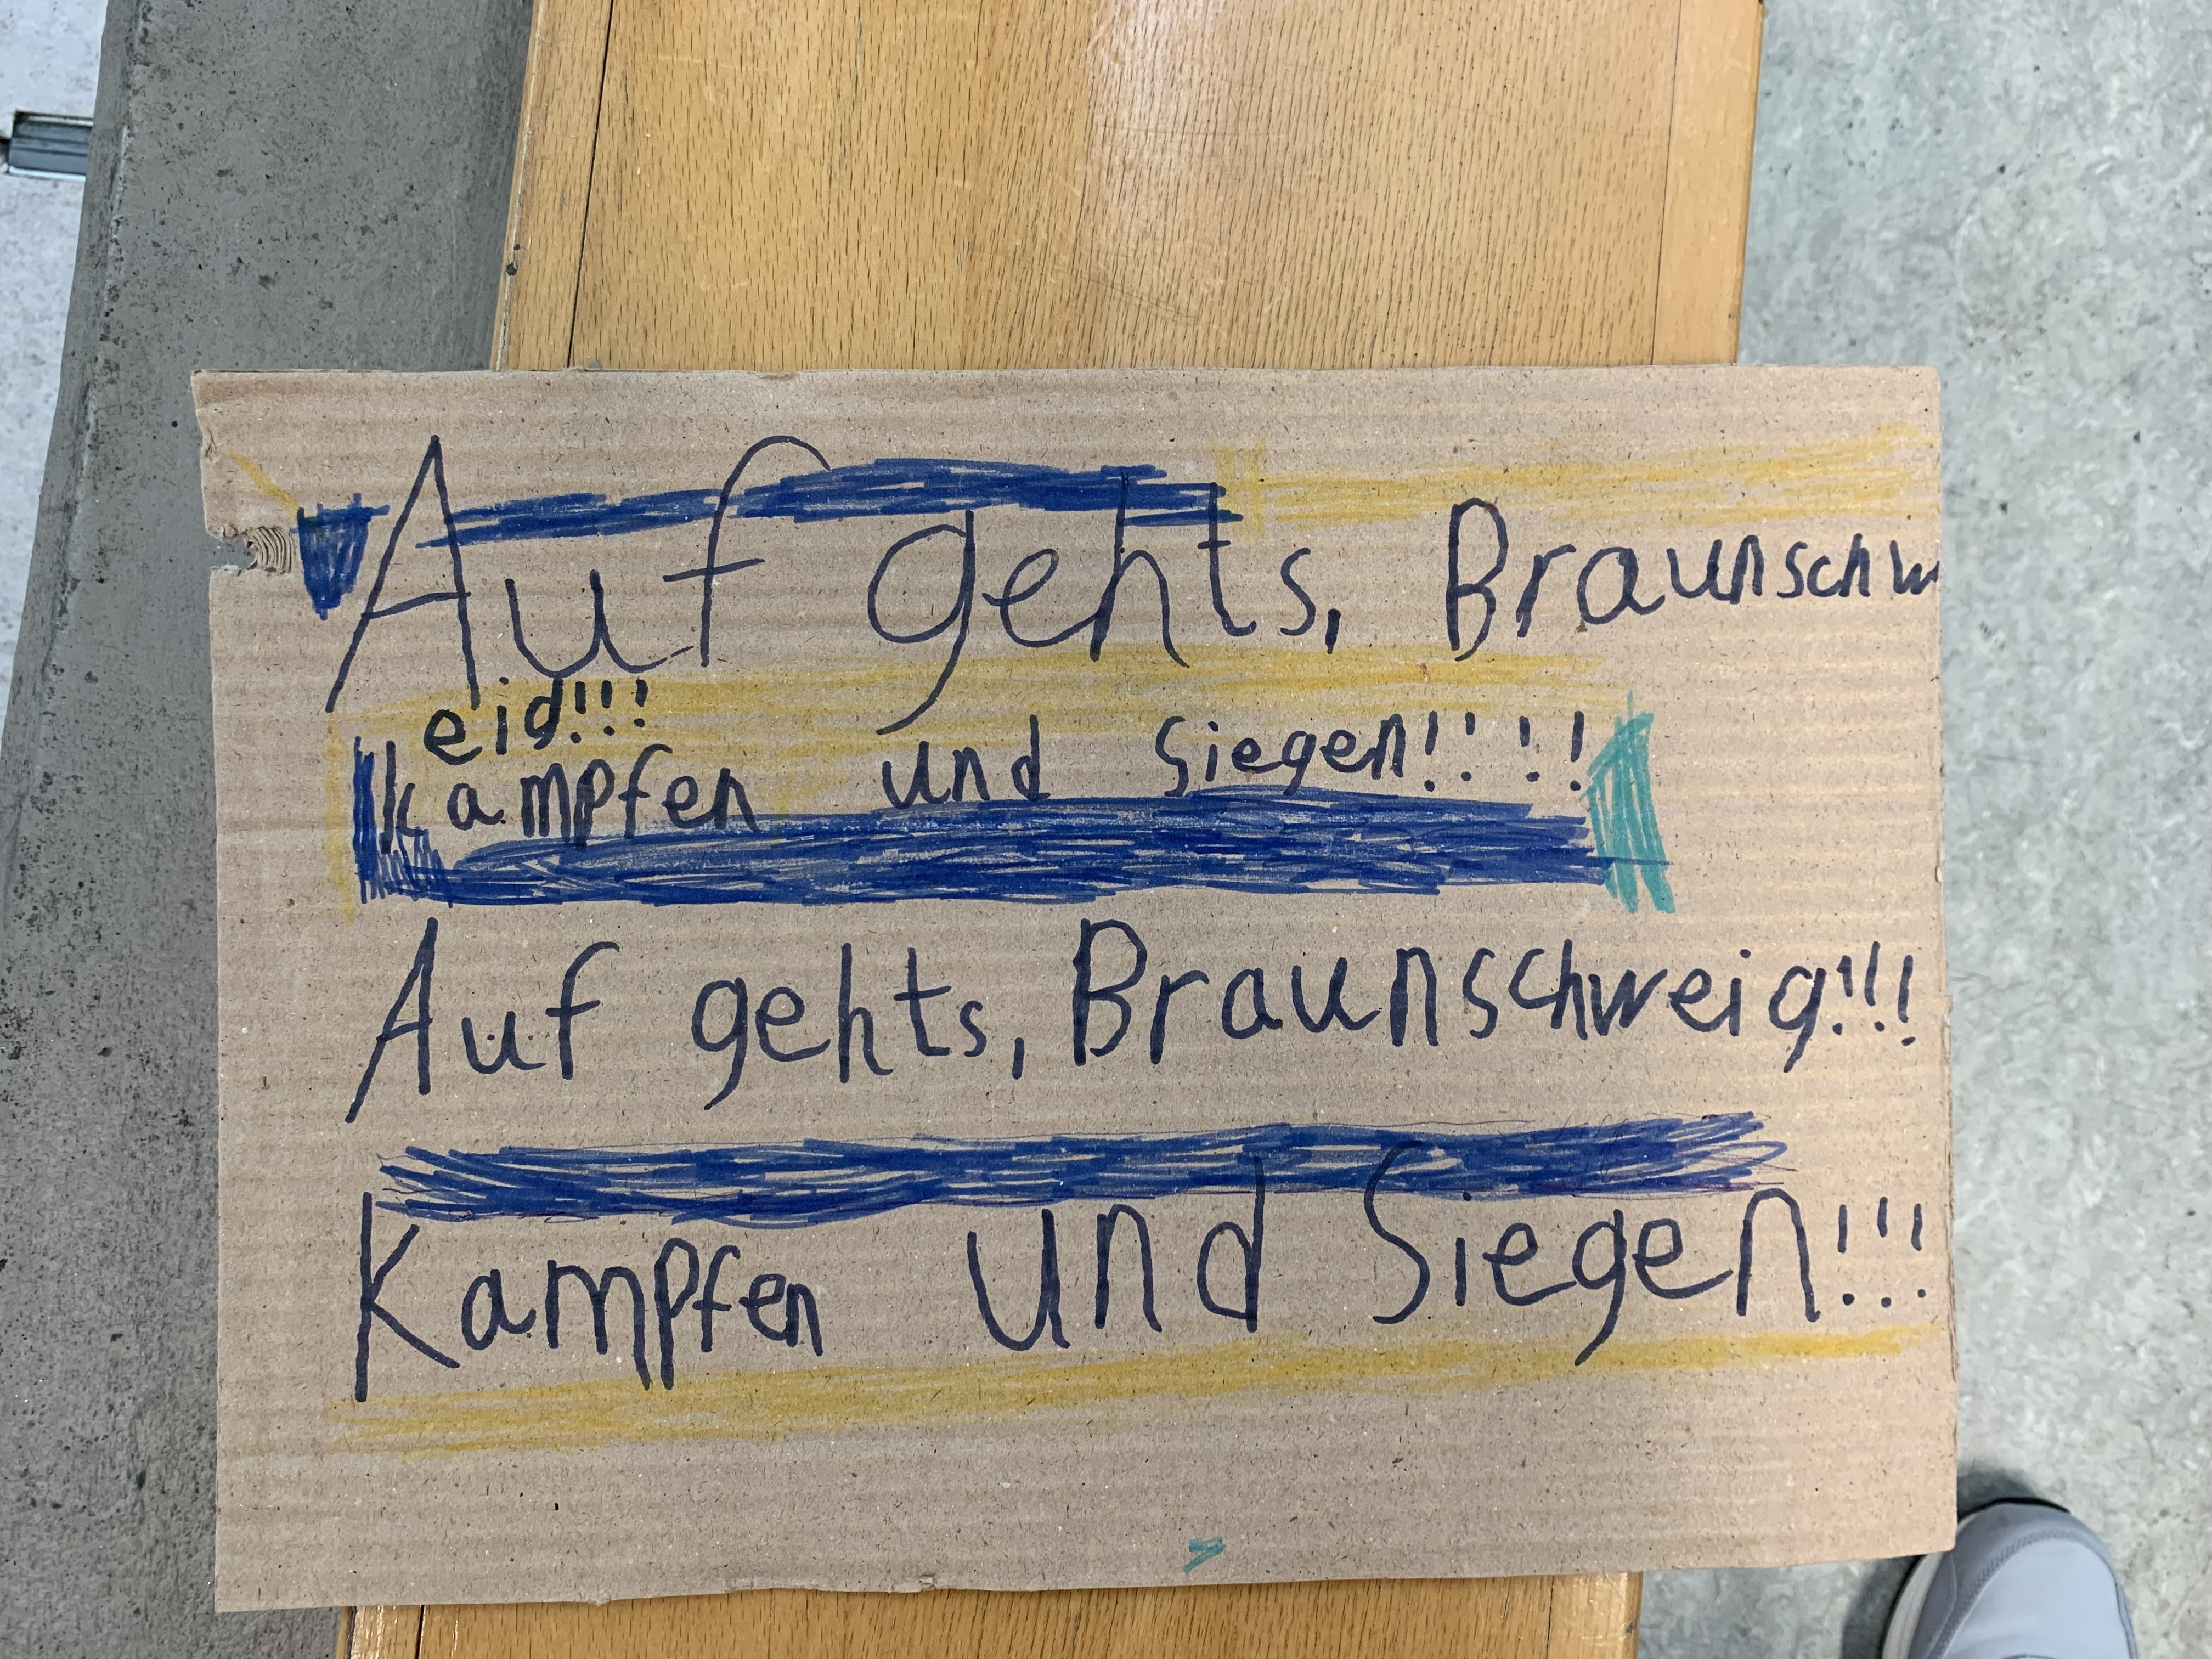 Auf gehts, Braunschw
eid!!!
kampfen und Siegen!!!!
Auf gehts, Braunschweig!!!
Kampfen und Siegen!!!